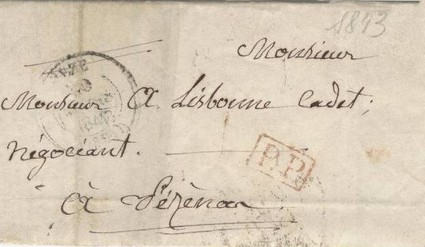 1843
Monsieur
Monsieur A Lisbonne Cadet;
négociant.
P.P.
à Pézénas